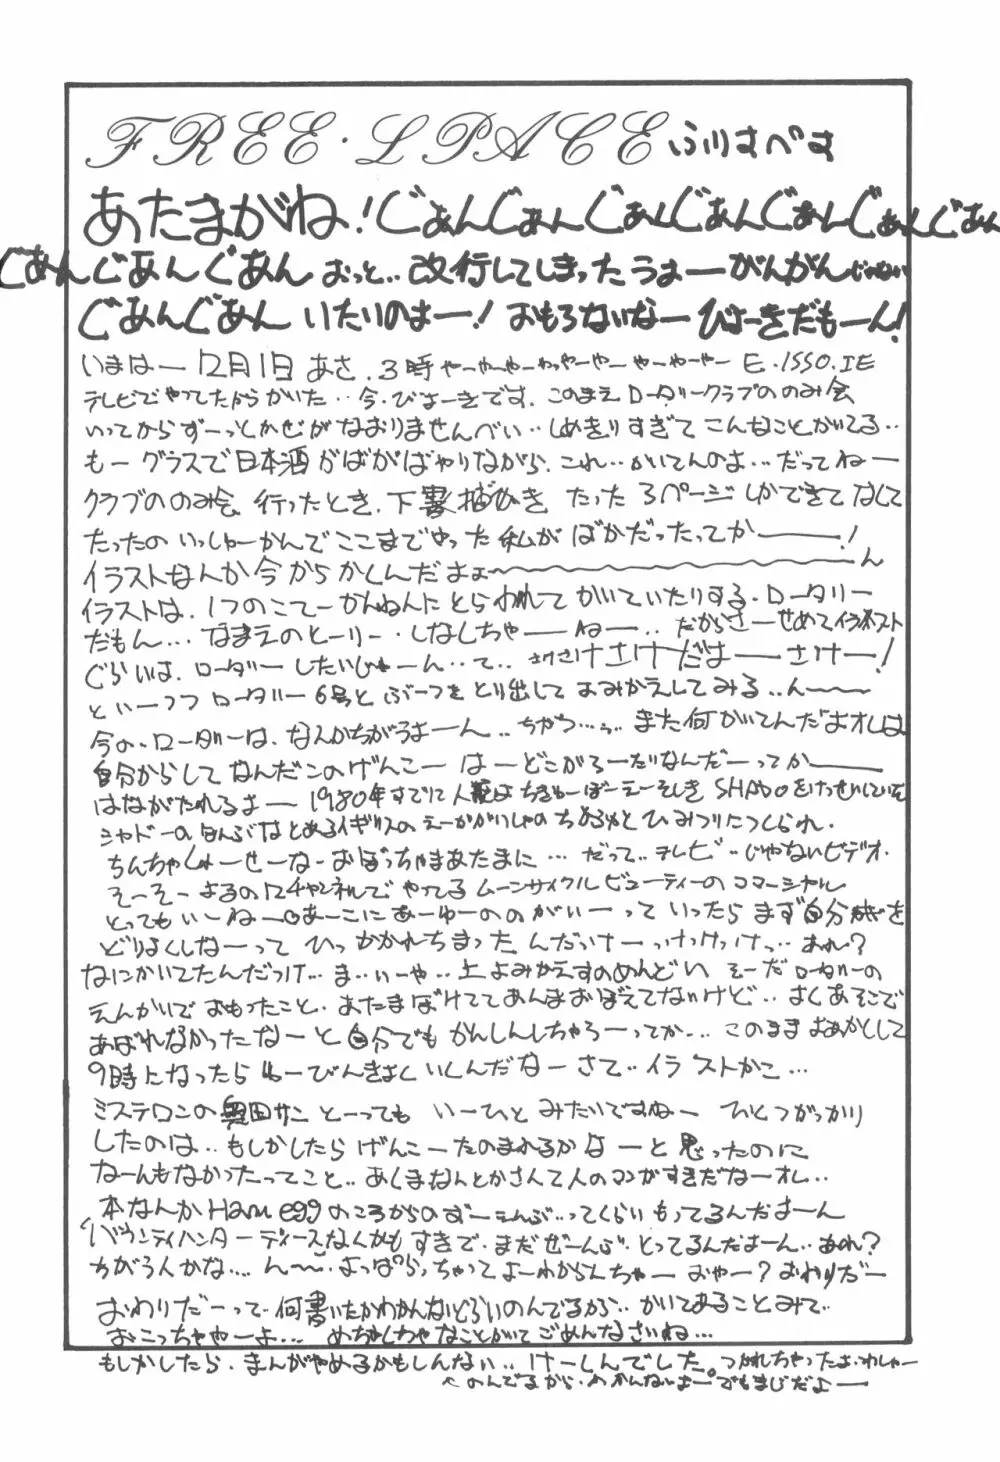 FREE・SPACE ふりすぺす
あたまがね！ぐあんぐあんぐあんぐあんぐあんぐあんぐあん
ぐあんぐあんぐあん おっと‥改行してしまったうおーがんがんじゃない
ぐあんぐあん いたいのよー！おもろないなー びょーきだもーん！
いまはー12月1日 あさ.3時 やーやーやーわっやーやー やーやーやー E.ISSO.IE
テレビでやってたからかいた‥今.びょーきです.このまえ ローダークラブののみ会
いってからずーっとかぜがなおりませんべい‥しめきりすぎて こんなことかいてる‥
もーグラスで日本酒がばがばやりながら.これ‥かいてんのよ…だってねー
クラブののみ会 行ったとき.下書 たった3ページしかできてなして
たったの いっしゅーかんでここまでやった私がばかだったってかー！
イラストなんか今からかくんだよぉ〜ん
イラストは.1つのこてーかんねんにとらわれてかいていたりする.ローダリー
だもん…なまえのとーりー.しなしちゃーねー‥だからさーせめてイラスト
ぐらいは.ローダーしたいひょーん‥て‥さけさけさけだよーさけー！
といーつつ ローダリー6号とぶーつをとり出して よみかえしてみる‥ん〜
今の.ローダーは.なんかちがうよーん‥ちがつ… また何かいてんだよオレは
自分からして なんだこのげんこーはーどこがろーだりなんだーってかー
はながたれるよー1980年すでに人類はちきゅーぼーえーそしき SHADOをけっせいしていた
シャドーのほんぶはとあるイギリスのえーかがいしゃのちかふかとひみつりにつくられ.
ちんちゃしょーせーなーおぼっちゃまあたまに…だって‥テレビ‥じゃないビデオ.
そーそーよるの12チャンネルでやってるムーンサイクルビューティーのコマーシャル
とってもいーねー あーこにあーゆーののがいーって いったら まず自分がを
どりょくしなーって ひっかかれちまったんだっけーっけっけっけっ‥あれ？
なにかいてたんだっけ…ま‥いーや‥上よみかえすのめんどい そーだローダリーの
えんかいでおもったこと.あたまぼけててあんまおぼえてないけど‥よくあそこで
あばれなかったなーと自分でもかんしんしちゃろーってか…このままよあかしして
9時になったらゆーびんきょくいくんだなーさて‥イラストかこ…
ミステロンの奥田サン とーってもいーひとみたいですねー ひとつがっかり
したのは‥もしかしたらげんこーたのまれるかなーと思ったのに
なーんもなかったってこと‥あくまなんとかさんて人のマンガすきだなーオレ…
本なんかHam eggのころからのずーえんぶ‥ってくらいもってるんだよーん
バウンティハンターディースなんかもすきで.まだぜーんぶ.とってるんだよーん‥あれ？
ちがう人かな…ん〜.よっぱらっちゃってよーわからんちゃーおゃー？おわりだー
おわりだーって.何書いたかわかんないくらいのんでるから‥かいてあることみて‥
おこっちゃやーよ…めちゃくちゃなことかいてごめんなさいね…
もしかしたら.まんがやめるかもしんない‥けーしんでした。つかれちゃったよ.わしゃー
へのんでるから.わかんないよー。でもまじだよー